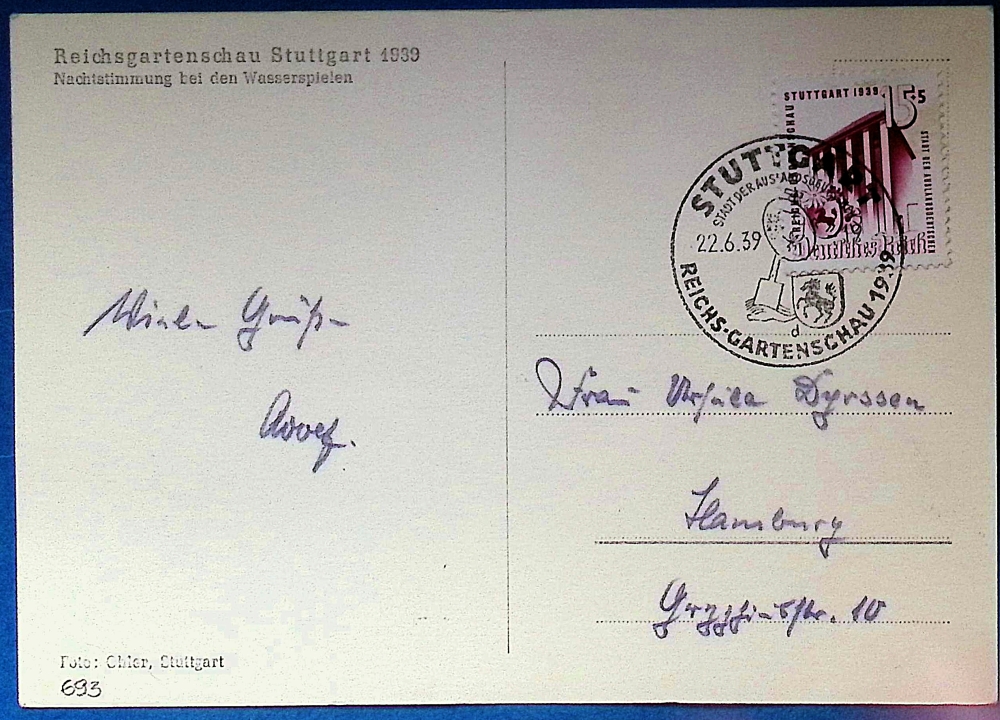 Reichsgartenschau Stuttgart 1939
Nachtstimmung bei den Wasserspielen
STUTTGART 1939
15+5
STADT DER AUSLANDSDEUTSCHEN
Deutsches Reich
STUTTGART
STADT DER AUSLANDSDEUTSCHEN
22.6.39
d
REICHS-GARTENSCHAU 1939
Viele Grüße
Frau Ursula Dyrssen
Hamburg
10
Foto: Ohler, Stuttgart
693